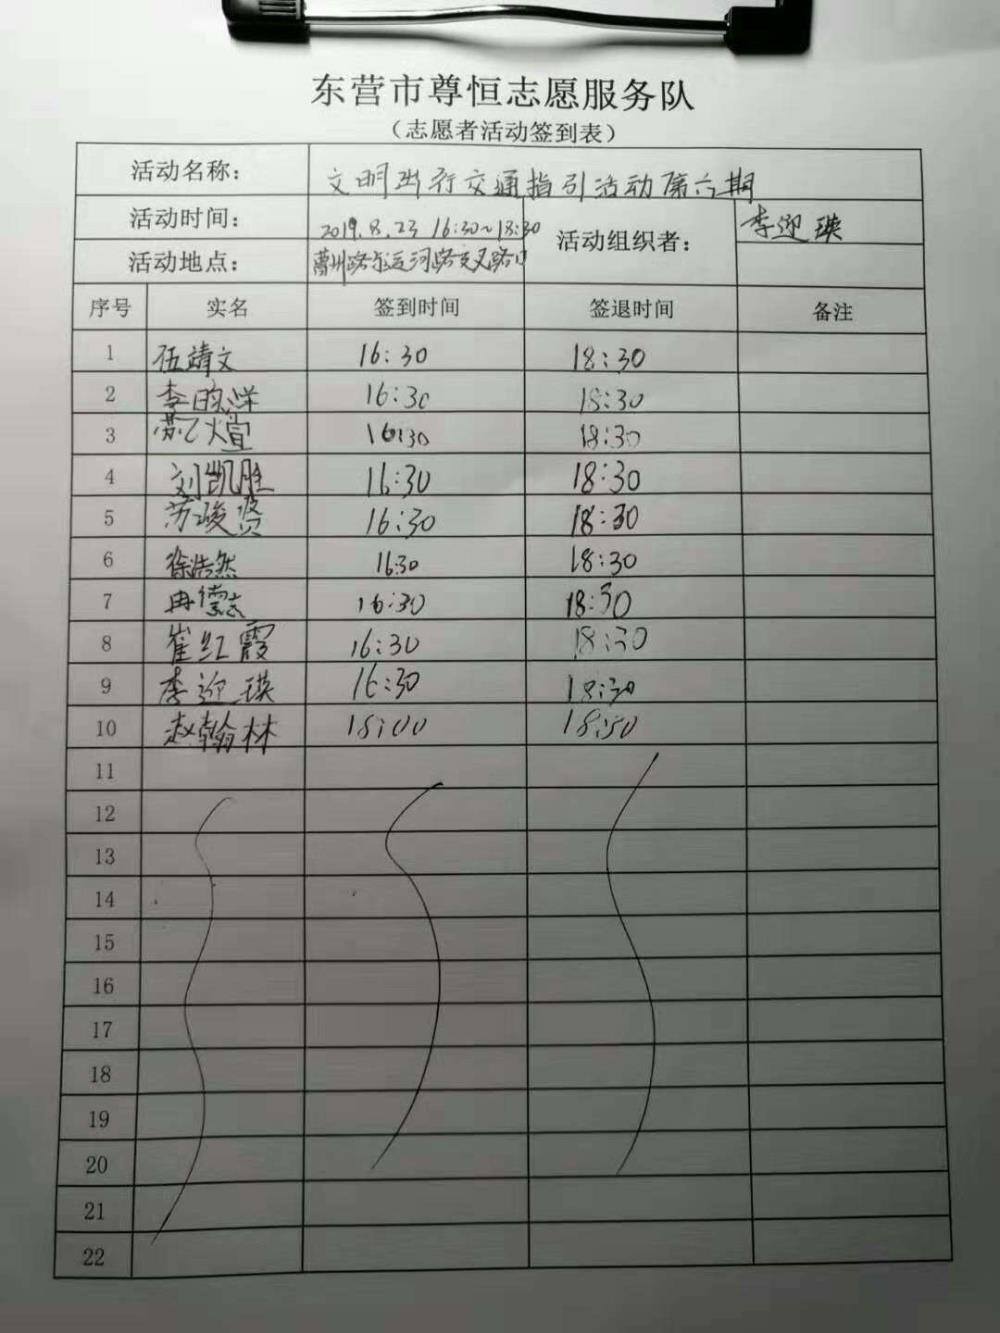 东营市尊恒志愿服务队
（志愿者活动签到表）
活动名称： 文明出行交通指引活动第六期
活动时间： 2019.8.23 16:30~18:30 活动组织者： 李迎瑛
活动地点： 路东运河路交叉路口
序号 实名 签到时间 签退时间 备注
1 伍靖文 16:30 18:30
2 李昀洋 16:30 18:30
3 苏煊 16:30 18:30
4 刘凯胜 16:30 18:30
5 苏峻贤 16:30 18:30
6 徐浩然 16:30 18:30
7 冉德志 16:30 18:30
8 崔红霞 16:30 18:30
9 李迎瑛 16:30 18:30
10 赵翰林 18:00 18:50
11
12
13
14
15
16
17
18
19
20
21
22